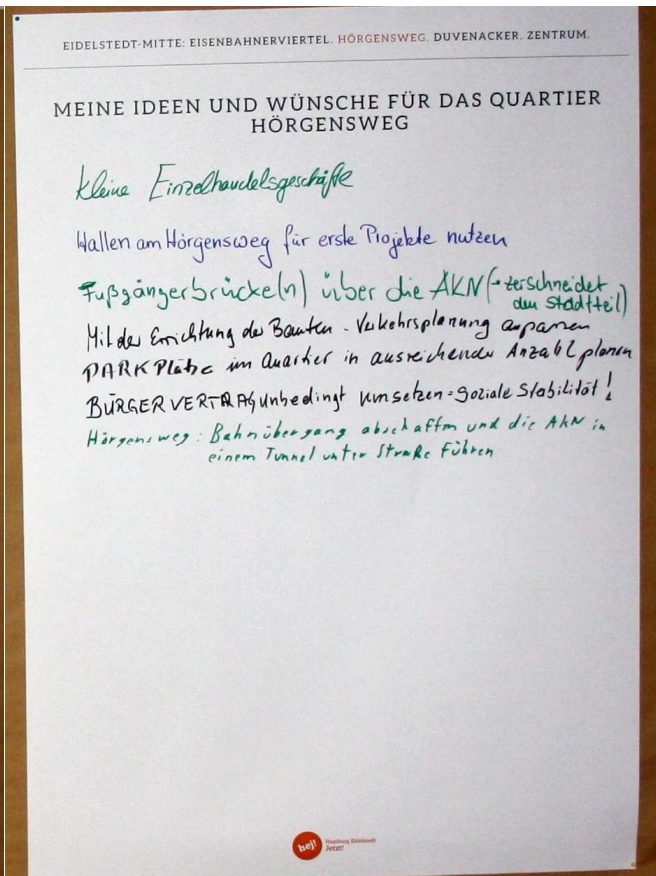 EIDELSTEDT-MITTE: EISENBAHNERVIERTEL. HÖRGENSWEG. DUVENACKER. ZENTRUM.
MEINE IDEEN UND WÜNSCHE FÜR DAS QUARTIER
HÖRGENSWEG
kleine Einzelhandelsgeschäfte
Hallen am Hörgensweg für erste Projekte nutzen
Fußgängerbrücke(n) über die AKN (→ zerschneidet
den Stadtteil)
Mit der Errichtung der Bauten - Verkehrsplanung anpassen
PARKPlätze im Quartier in ausreichender Anzahl planen
BÜRGERVERTRAG unbedingt umsetzen = Soziale Stabilität!
Hörgensweg: Bahnübergang abschaffen und die AKN in
einem Tunnel unter Straße führen
hej! Hamburg Eidelstedt
Jetzt!